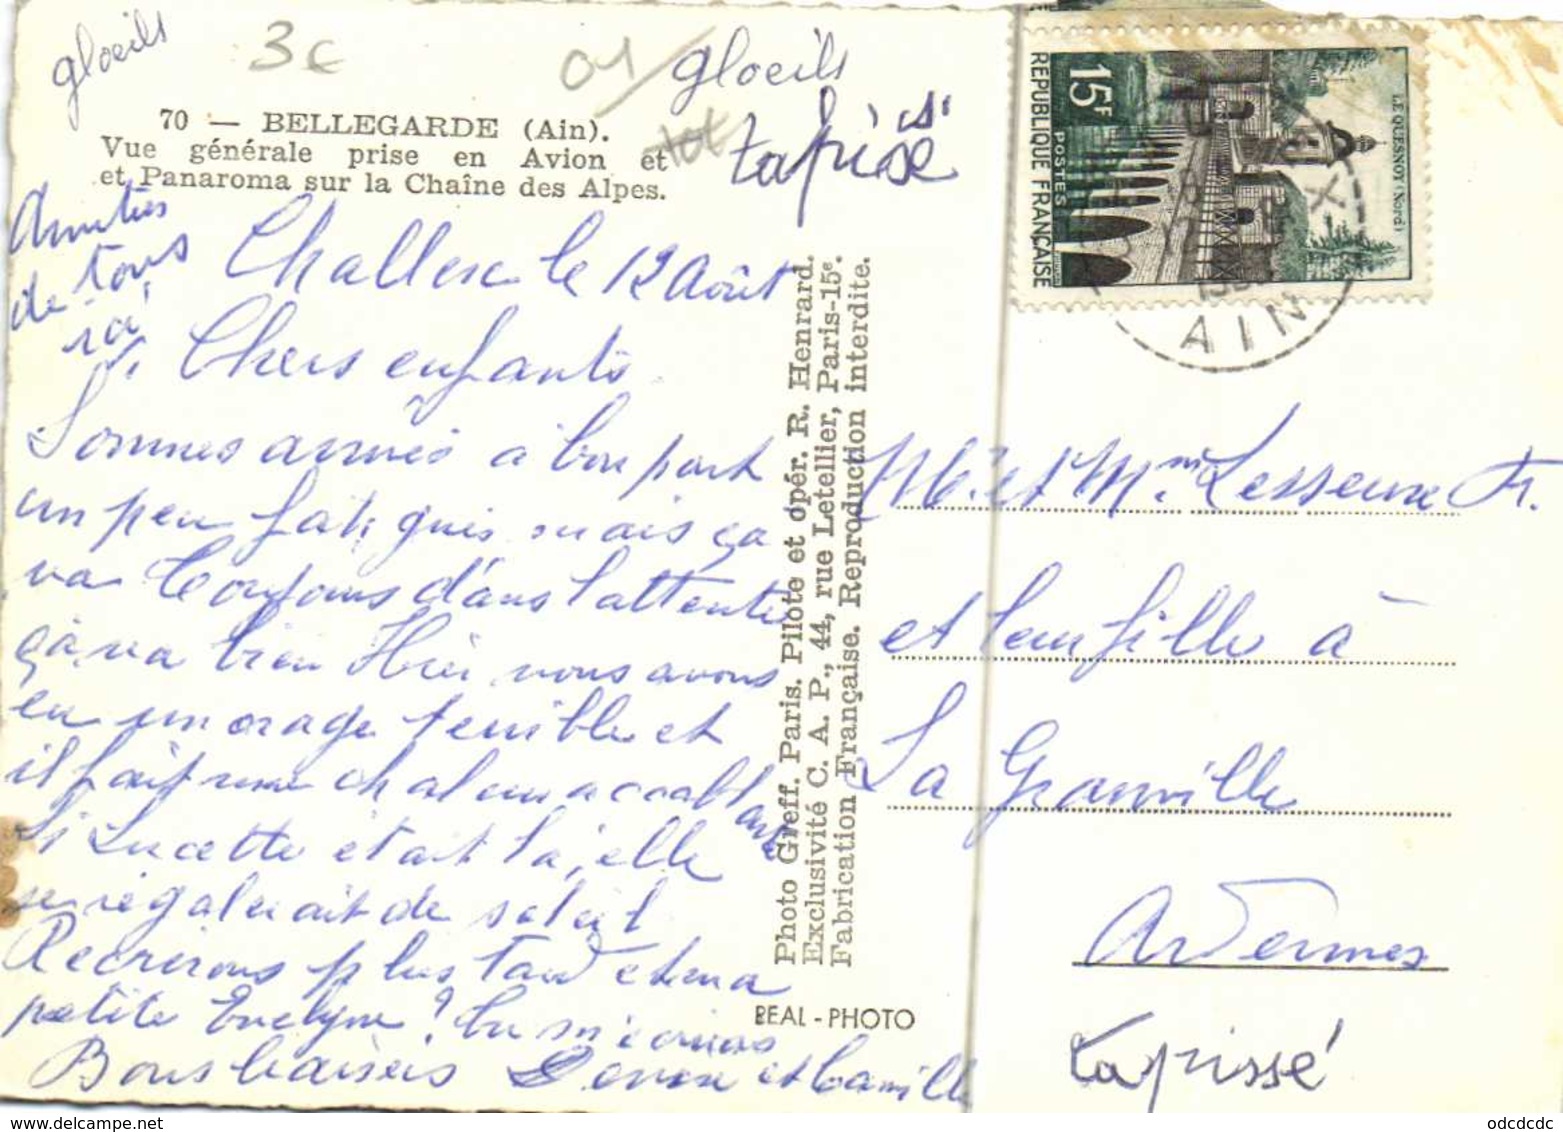 gloeils
3c
04
gloeils
70 — BELLEGARDE (Ain).
Vue générale prise en Avion et
et Panaroma sur la Chaîne des Alpes.
tapissé
Amitiés
de tous
ici
Challex le 12 Août
Chers enfants
Sommes arrivés à bon port
un peu fatigués mais ça
va Toujours dans l'attente
ça va bien Hier nous avons
eu un orage terrible et
il fait une chaleur accablante
Si Lucette était là, elle
se régalerait de soleil
Recrirons plus tard et ma
petite Evelyne? tu m'écriras
Bons baisers et Camille
Photo Greff. Paris. Pilote et opér. R. Henrard.
Exclusivité C. A. P., 44, rue Letellier, Paris-15e.
Fabrication Française. Reproduction interdite.
REAL-PHOTO
15F
POSTES
REPUBLIQUE FRANÇAISE
LE QUESNOY (Nord)
AIN
Mr et Mme Lesseure Fr.
et leur fille à
La Granville
Ardennes
tapissé
odcdcdc